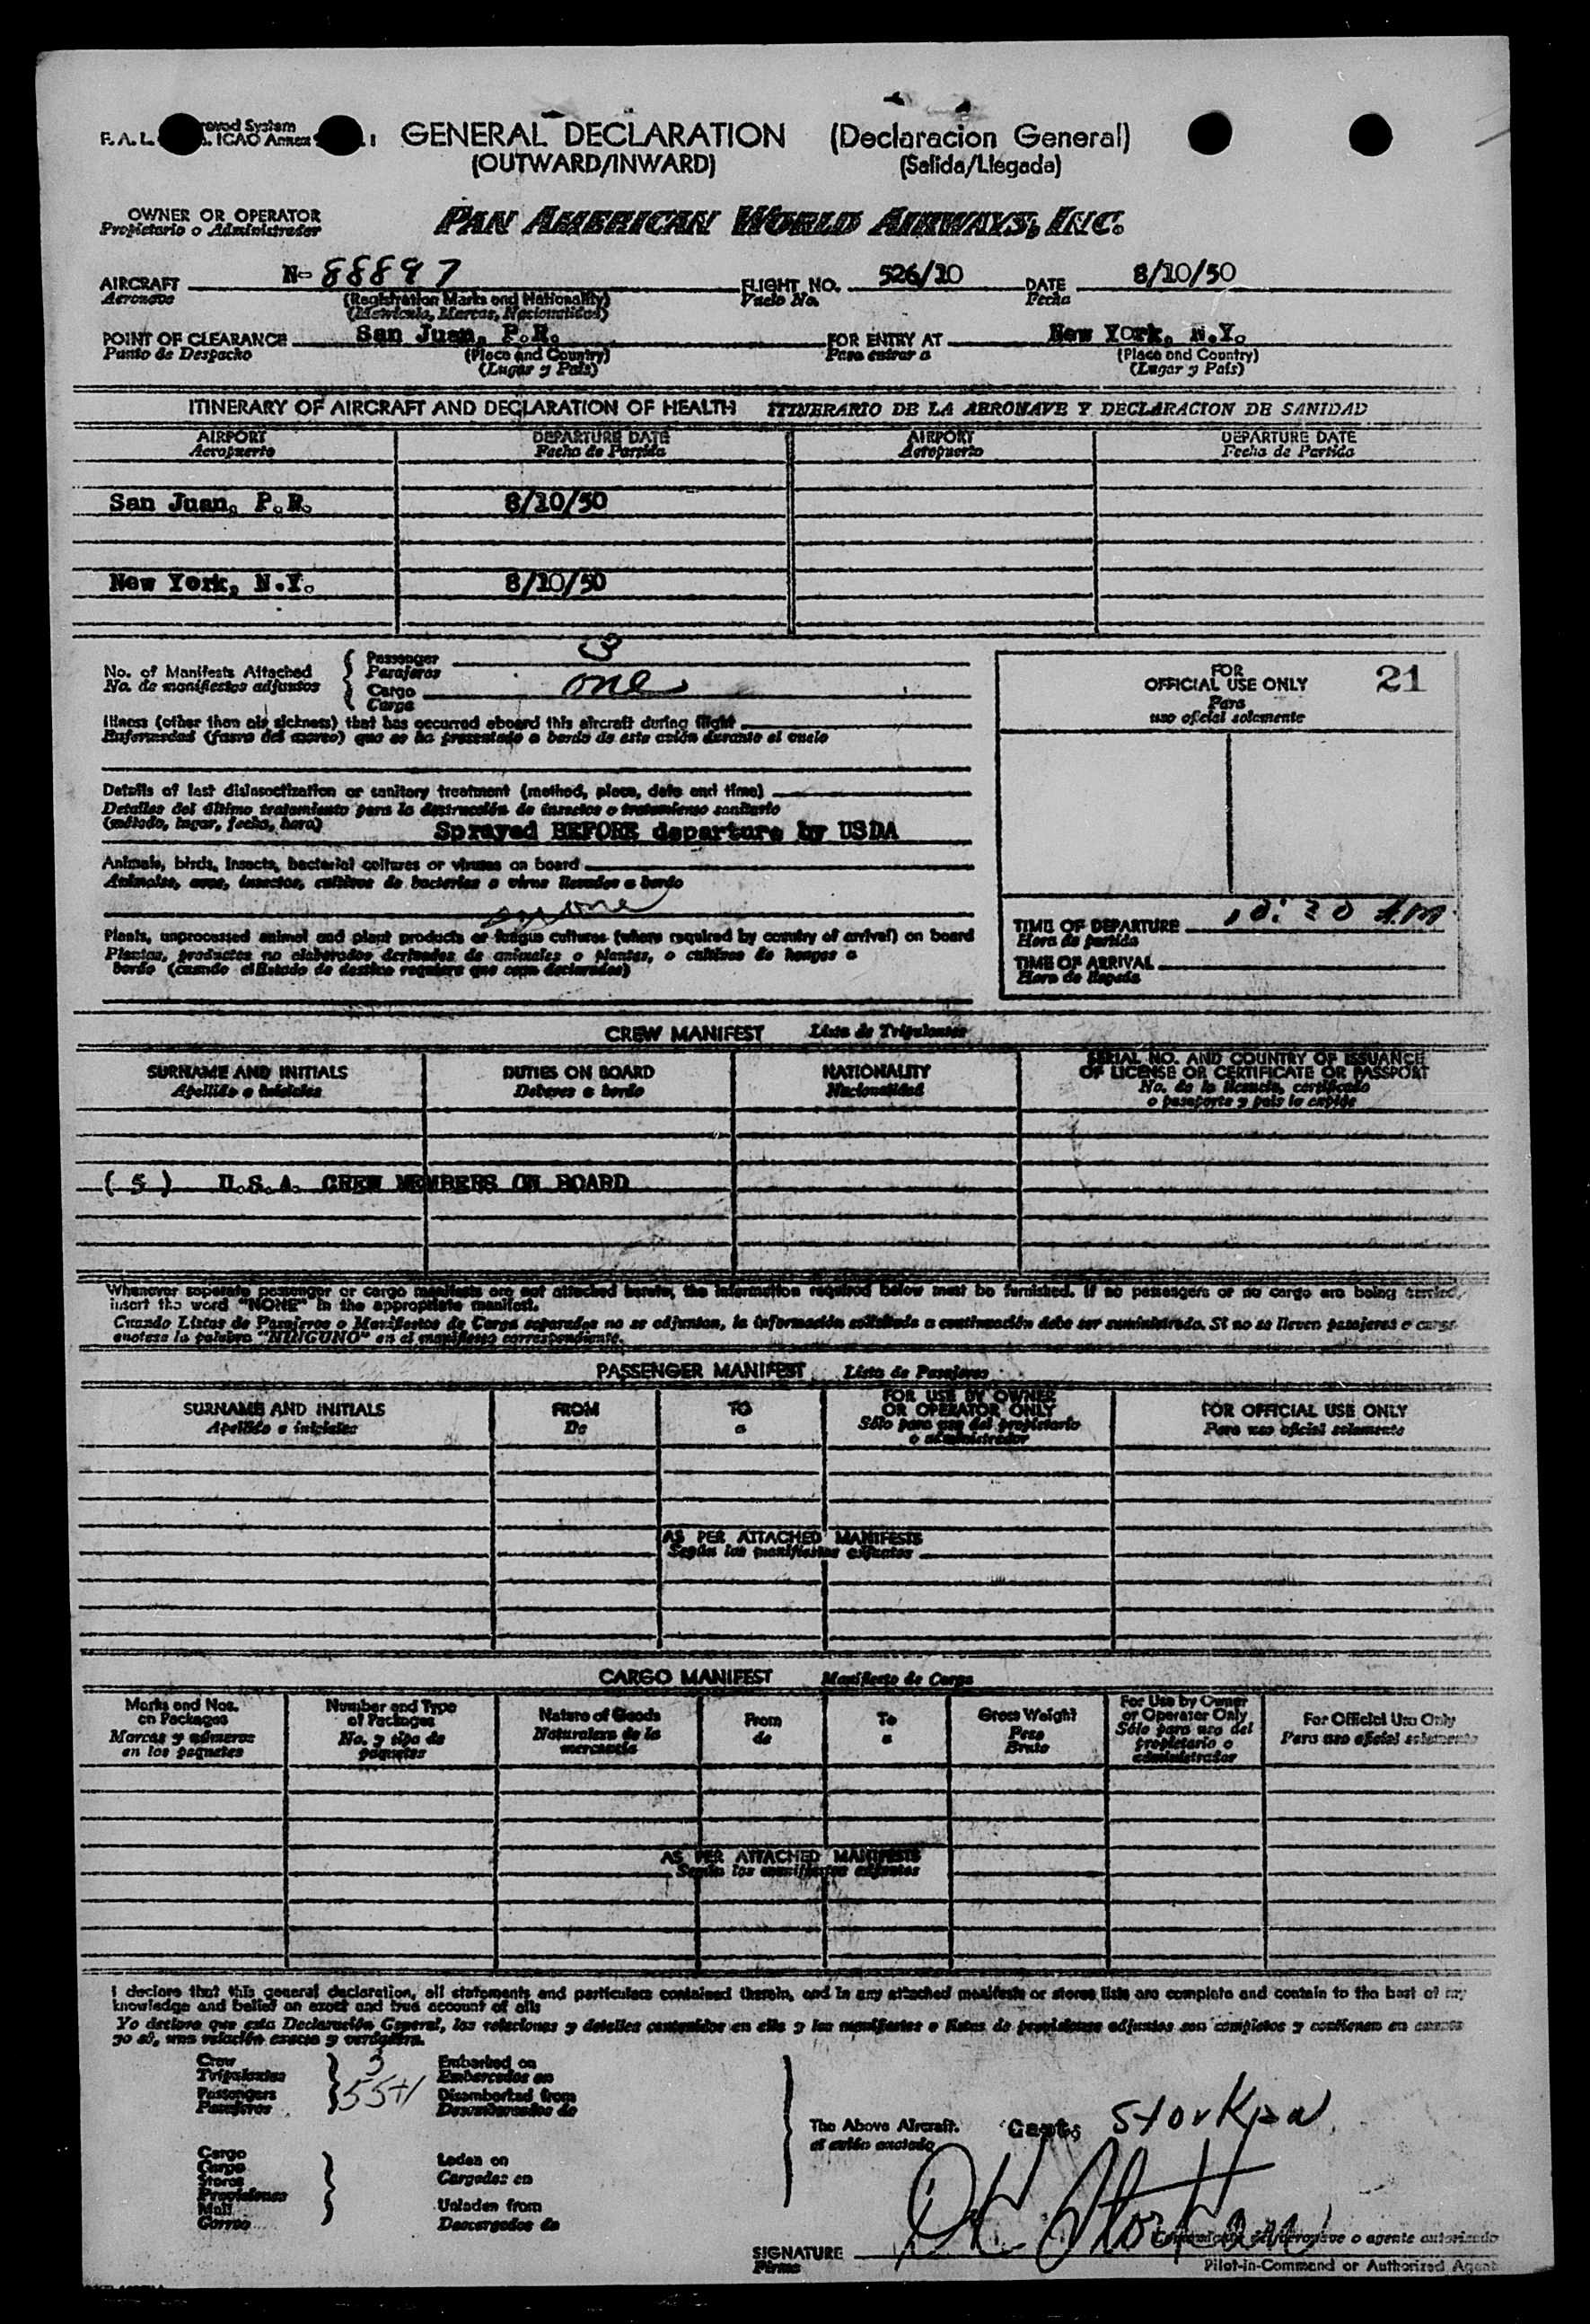 F. A. L. ICAO Annex
GENERAL DECLARATION (Declaracion General)
(OUTWARD/INWARD) (Salida/Llegada)
OWNER OR OPERATOR PAN AMERICAN WORLD AIRWAYS, INC.
Propietario o Administrador
AIRCRAFT N-88897 FLIGHT NO. 526/10 DATE 8/10/50
Aeronave (Registration Marks and Nationality) Vuelo No. Fecha
(Matricula, Marcas, Nacionalidad)
POINT OF CLEARANCE San Juan, P.R. FOR ENTRY AT New York, N.Y.
Punto de Despacho (Place and Country) Para entrar a (Place and Country)
(Lugar y País) (Lugar y País)
ITINERARY OF AIRCRAFT AND DECLARATION OF HEALTH ITINERARIO DE LA AERONAVE Y DECLARACION DE SANIDAD
AIRPORT DEPARTURE DATE AIRPORT DEPARTURE DATE
Aeropuerto Fecha de Partida Aeropuerto Fecha de Partida
San Juan, P.R. 8/10/50
New York, N.Y. 8/10/50
No. of Manifests Attached Passenger 3
No. de manifiestos adjuntos Pasajeros
Cargo one
Carga
Illness (other than air sickness) that has occurred aboard this aircraft during flight
Enfermedad (fuera del mareo) que se ha presentado a bordo de este avión durante el vuelo
Details of last disinsectization or sanitary treatment (method, place, date and time)
Detalles del último tratamiento para la destrucción de insectos o tratamiento sanitario
(método, lugar, fecha, hora) Sprayed BEFORE departure by USDA
Animals, birds, insects, bacterial cultures or viruses on board
Animales, aves, insectos, cultivos de bacterias o virus llevados a bordo
none
Plants, unprocessed animal and plant products or fungus cultures (where required by country of arrival) on board
Plantas, productos no elaborados derivados de animales o plantas, o cultivos de hongos a
bordo (cuando el Estado de destino requiere que sean declarados)
FOR 21
OFFICIAL USE ONLY
Para
uso oficial solamente
TIME OF DEPARTURE 10:20 A.M.
Hora de partida
TIME OF ARRIVAL
Hora de llegada
CREW MANIFEST Lista de Tripulantes
SURNAME AND INITIALS DUTIES ON BOARD NATIONALITY SERIAL NO. AND COUNTRY OF ISSUANCE
OF LICENSE OR CERTIFICATE OR PASSPORT
Apellido e iniciales Deberes a bordo Nacionalidad No. de la licencia, certificado
o pasaporte y país lo expide
( 5 ) U.S.A. CREW MEMBERS ON BOARD
Whenever separate passenger or cargo manifests are not attached hereto, the information required below must be furnished. If no passengers or no cargo are being carried,
insert the word "NONE" in the appropriate manifest.
Cuando Listas de Pasajeros o Manifiestos de Carga separados no se adjuntan, la información solicitada a continuación debe ser suministrada. Si no se llevan pasajeros o carga
anotese la palabra "NINGUNO" en el manifiesto correspondiente.
PASSENGER MANIFEST Lista de Pasajeros
SURNAME AND INITIALS FROM TO FOR USE BY OWNER FOR OFFICIAL USE ONLY
OR OPERATOR ONLY
Apellido e iniciales De a Sólo para uso del propietario Para uso oficial solamente
o administrador
AS PER ATTACHED MANIFESTS
Según los manifiestos adjuntos
CARGO MANIFEST Manifiesto de Carga
Marks and Nos. Number and Type Nature of Goods From To Gross Weight For Use by Owner For Official Use Only
on Packages of Packages or Operator Only
Marcas y números No. y tipo de Naturaleza de la de a Peso Sólo para uso del Para uso oficial solamente
en los paquetes paquetes mercancía Bruto propietario o
administrador
AS PER ATTACHED MANIFESTS
Según los manifiestos adjuntos
I declare that this general declaration, all statements and particulars contained therein, and in any attached manifests or stores lists are complete and contain to the best of my
knowledge and belief an exact and true account of all:
Yo declaro que esta Declaración General, las relaciones y detalles contenidos en ella y los manifiestos o listas de provisiones adjuntos son completos y contienen en cuanto
yo sé, una relación exacta y verdadera.
Crew 3 Embarked on
Tripulantes Embarcados en
Passengers 55+1 Disembarked from
Pasajeros Desembarcados de
The Above Aircraft. Capt. Storkan
el avión anotado
Cargo Laden on
Carga Cargados en
Stores
Provisiones
Mail Unladen from
Correo Descargados de
SIGNATURE
Firma
o agente autorizado
Pilot-in-Command or Authorized Agent